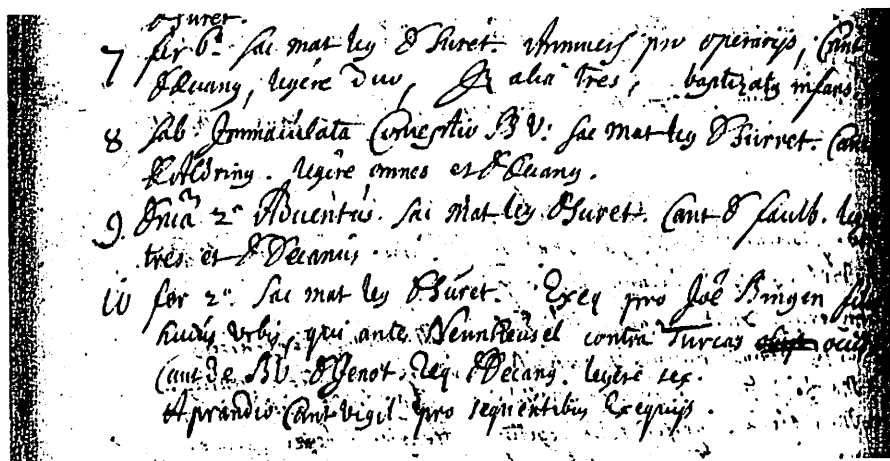 D Suret.
7 fer 6ª. sac mat leg D Suret. Anniuers pro operarijs, Cant
D Decang, legére duo, alia tres, baptizatg infans.
8 Sab. Immaculata Conceptio B V: sac mat leg D Surret. Cant
R Aldring. legére omnes et D Decang.
9. Dnica 2ª Aduentus. sac mat leg D Suret. Cant D faulb. leg
tres et D Decanus.
10 fer 2ª. sac mat leg D Suret. Exeq pro Joê Bingen fil
huius vrbis, qui ante Neuheusel contra Turcas occis
Cant de BV. D Jenot. leg D Decang. legére sex.
A prandio Cant vigil pro sequentibus Exequijs.